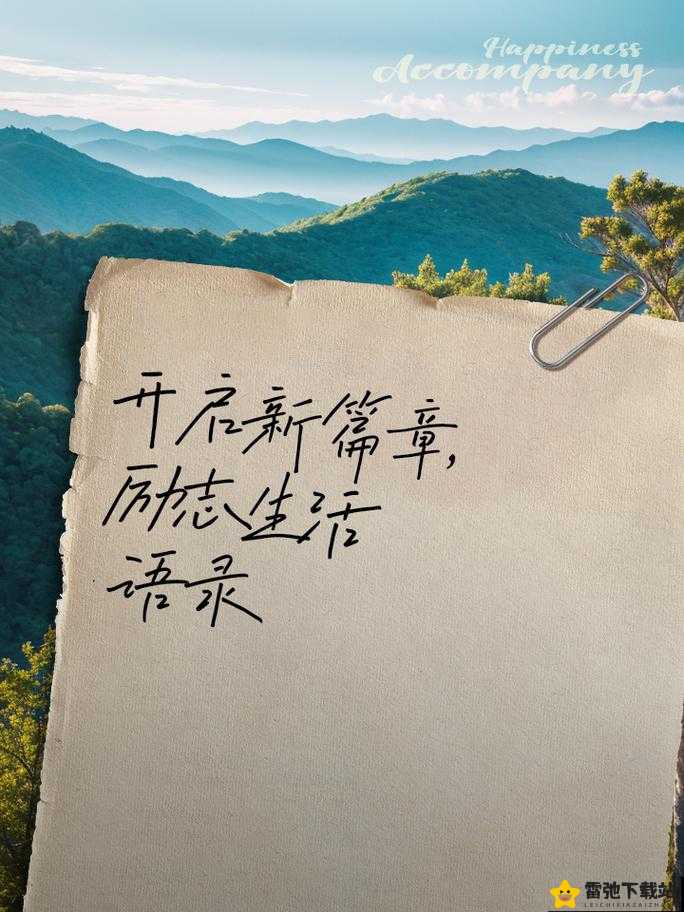 Happiness
Accompany
开启新篇章,
励志生活
语录
雷弛下载站
LEICHIXIAZAIZHAN